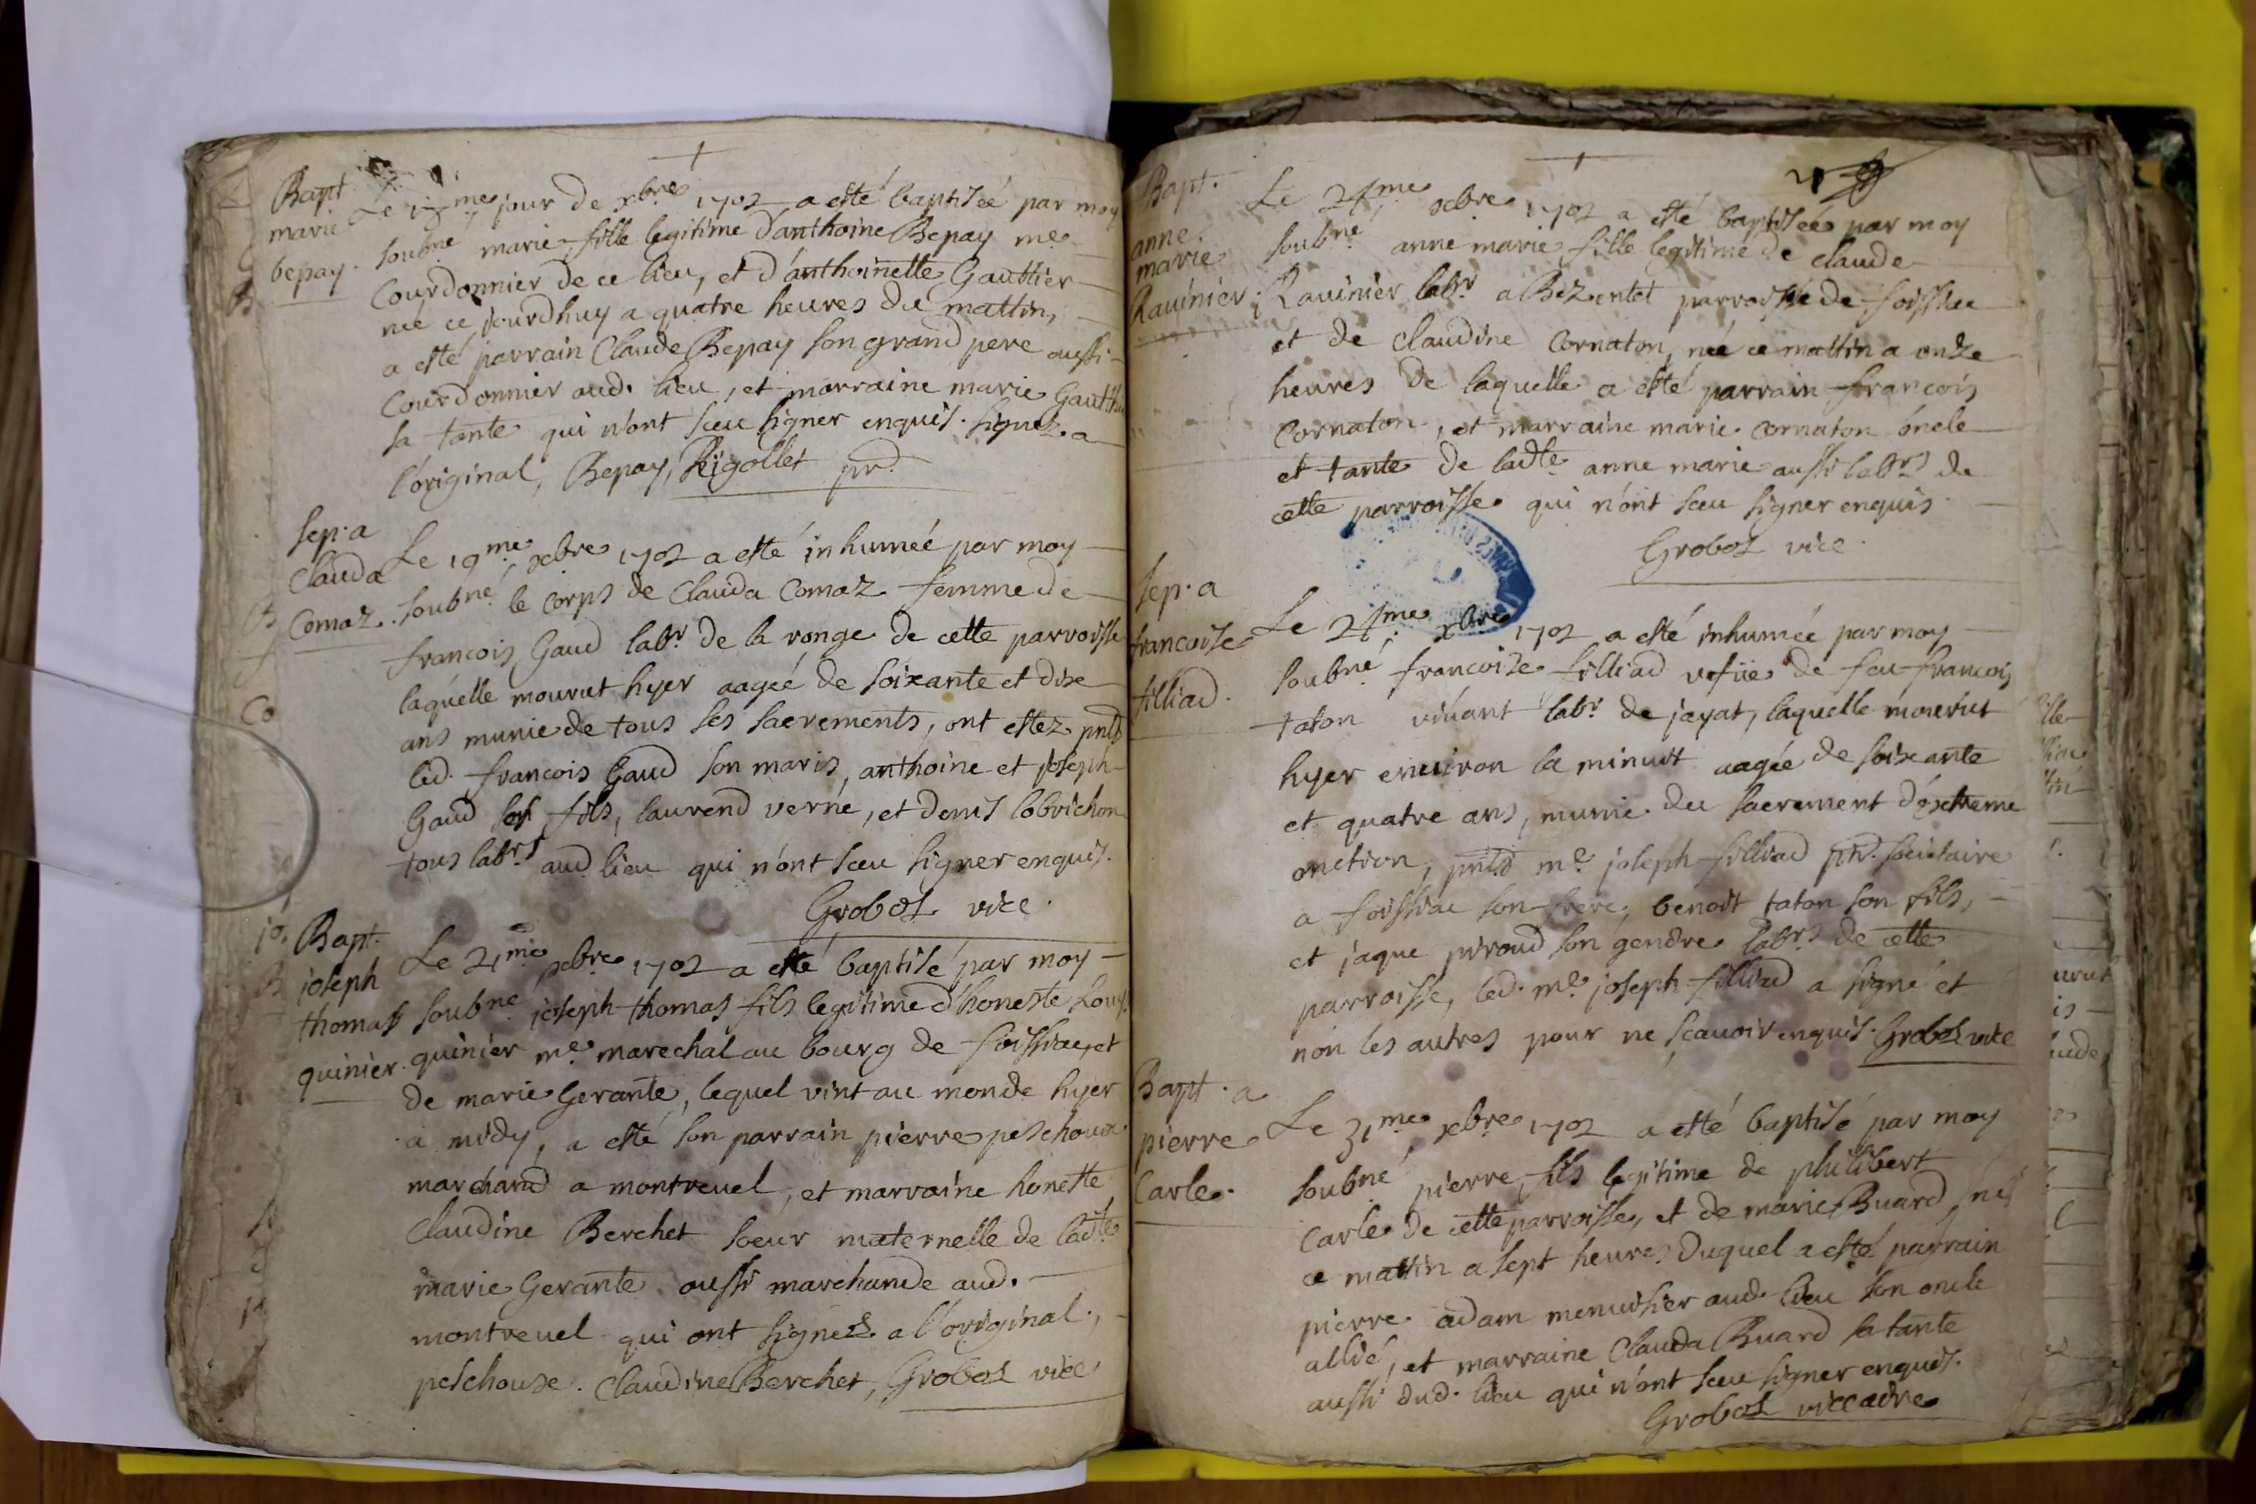 Bapt.
marie
bepay.
Le 17me jour de xbre 1702 a esté baptisée par moy
soubné marie fille legitime d'anthoine Bepay me
Courdonnier de ce lieu, et d'anthoinette Gauttier
née ce jourdhuy a quatre heures du mattin,
a esté parrain Claude Bepay son grand pere aussi
Courdonnier aud. lieu, et marraine marie Gautthier
sa tante qui n'ont sceu signer enquis. signez a
l'original, Bepay, Rigollet prd.
Sep. a
Clauda
Comaz.
Le 19me xbre 1702 a esté inhumée par moy
soubné le corps de Clauda Comaz femme de
francois Gaud labr. de la ronge de cette parroisse
laquelle mourut hyer aagée de soixante et dix
ans munie de tous ses sacrements, ont estez pnts
led. francois Gaud son maris, anthoine et joseph
Gaud ses fils, laurend verne, et denis lobrichon
tous labrs aud lieu qui n'ont sceu signer enquis.
Grobos vice.
Bapt.
joseph
thomas
quinier.
Le 21me xbre 1702 a esté baptisé par moy
soubné joseph thomas fils legitime d'honeste Louys
quinier me marechal au bourg de foissiac, et
de marie Gerante, lequel vint au monde hyer
a midy, a esté son parrain pierre peschoux
marchand a montrevel, et marraine honeste
Claudine Berchet soeur maternelle de ladte
marie Gerante aussi marchande aud.
montrevel qui ont signez a l'original,
peschouxe. Claudine Berchet, Grobos vice
Bapt.
anne
marie
Ravinier.
Le 24me xbre 1702 a esté baptisée par moy
soubné anne marie fille legitime de claude
Ravinier labr a Bezentet parroisse de foissiac
et de claudine Cornaton, née ce mattin a onze
heures de laquelle a esté parrain francois
Cornaton, et marraine marie cornaton oncle
et tante de ladte anne marie aussi labrs de
cette parroisse qui n'ont sceu signer enquis.
Grobos vice.
Sep. a
francoise
filliad.
Le 24me xbre 1702 a esté inhumée par moy
soubné francoise filliad vefue de feu francois
taton vivant labr. de jayat, laquelle mourut
hyer environ la minuit aagée de soixante
et quatre ans, munie du sacrement d'extreme
onction, pnts me joseph filliad ptr. societaire
a foissiac son frere, benoit taton son fils,
et jaque piroud son gendre labrs de cette
parroisse, led. me joseph filliad a signé et
non les autres pour ne sçavoir enquis. Grobos vice
Bapt. a
pierre
Carle.
Le 31me xbre 1702 a esté baptisé par moy
soubné pierre, fils legitime de philibert
Carle de cette parroisse, et de marie Buard né
ce mattin a sept heures duquel a esté parrain
pierre adam menuisier aud. lieu son oncle
allié, et marraine Clauda Buard sa tante
aussi dud. lieu qui n'ont sceu signer enquis.
Grobos viccaire